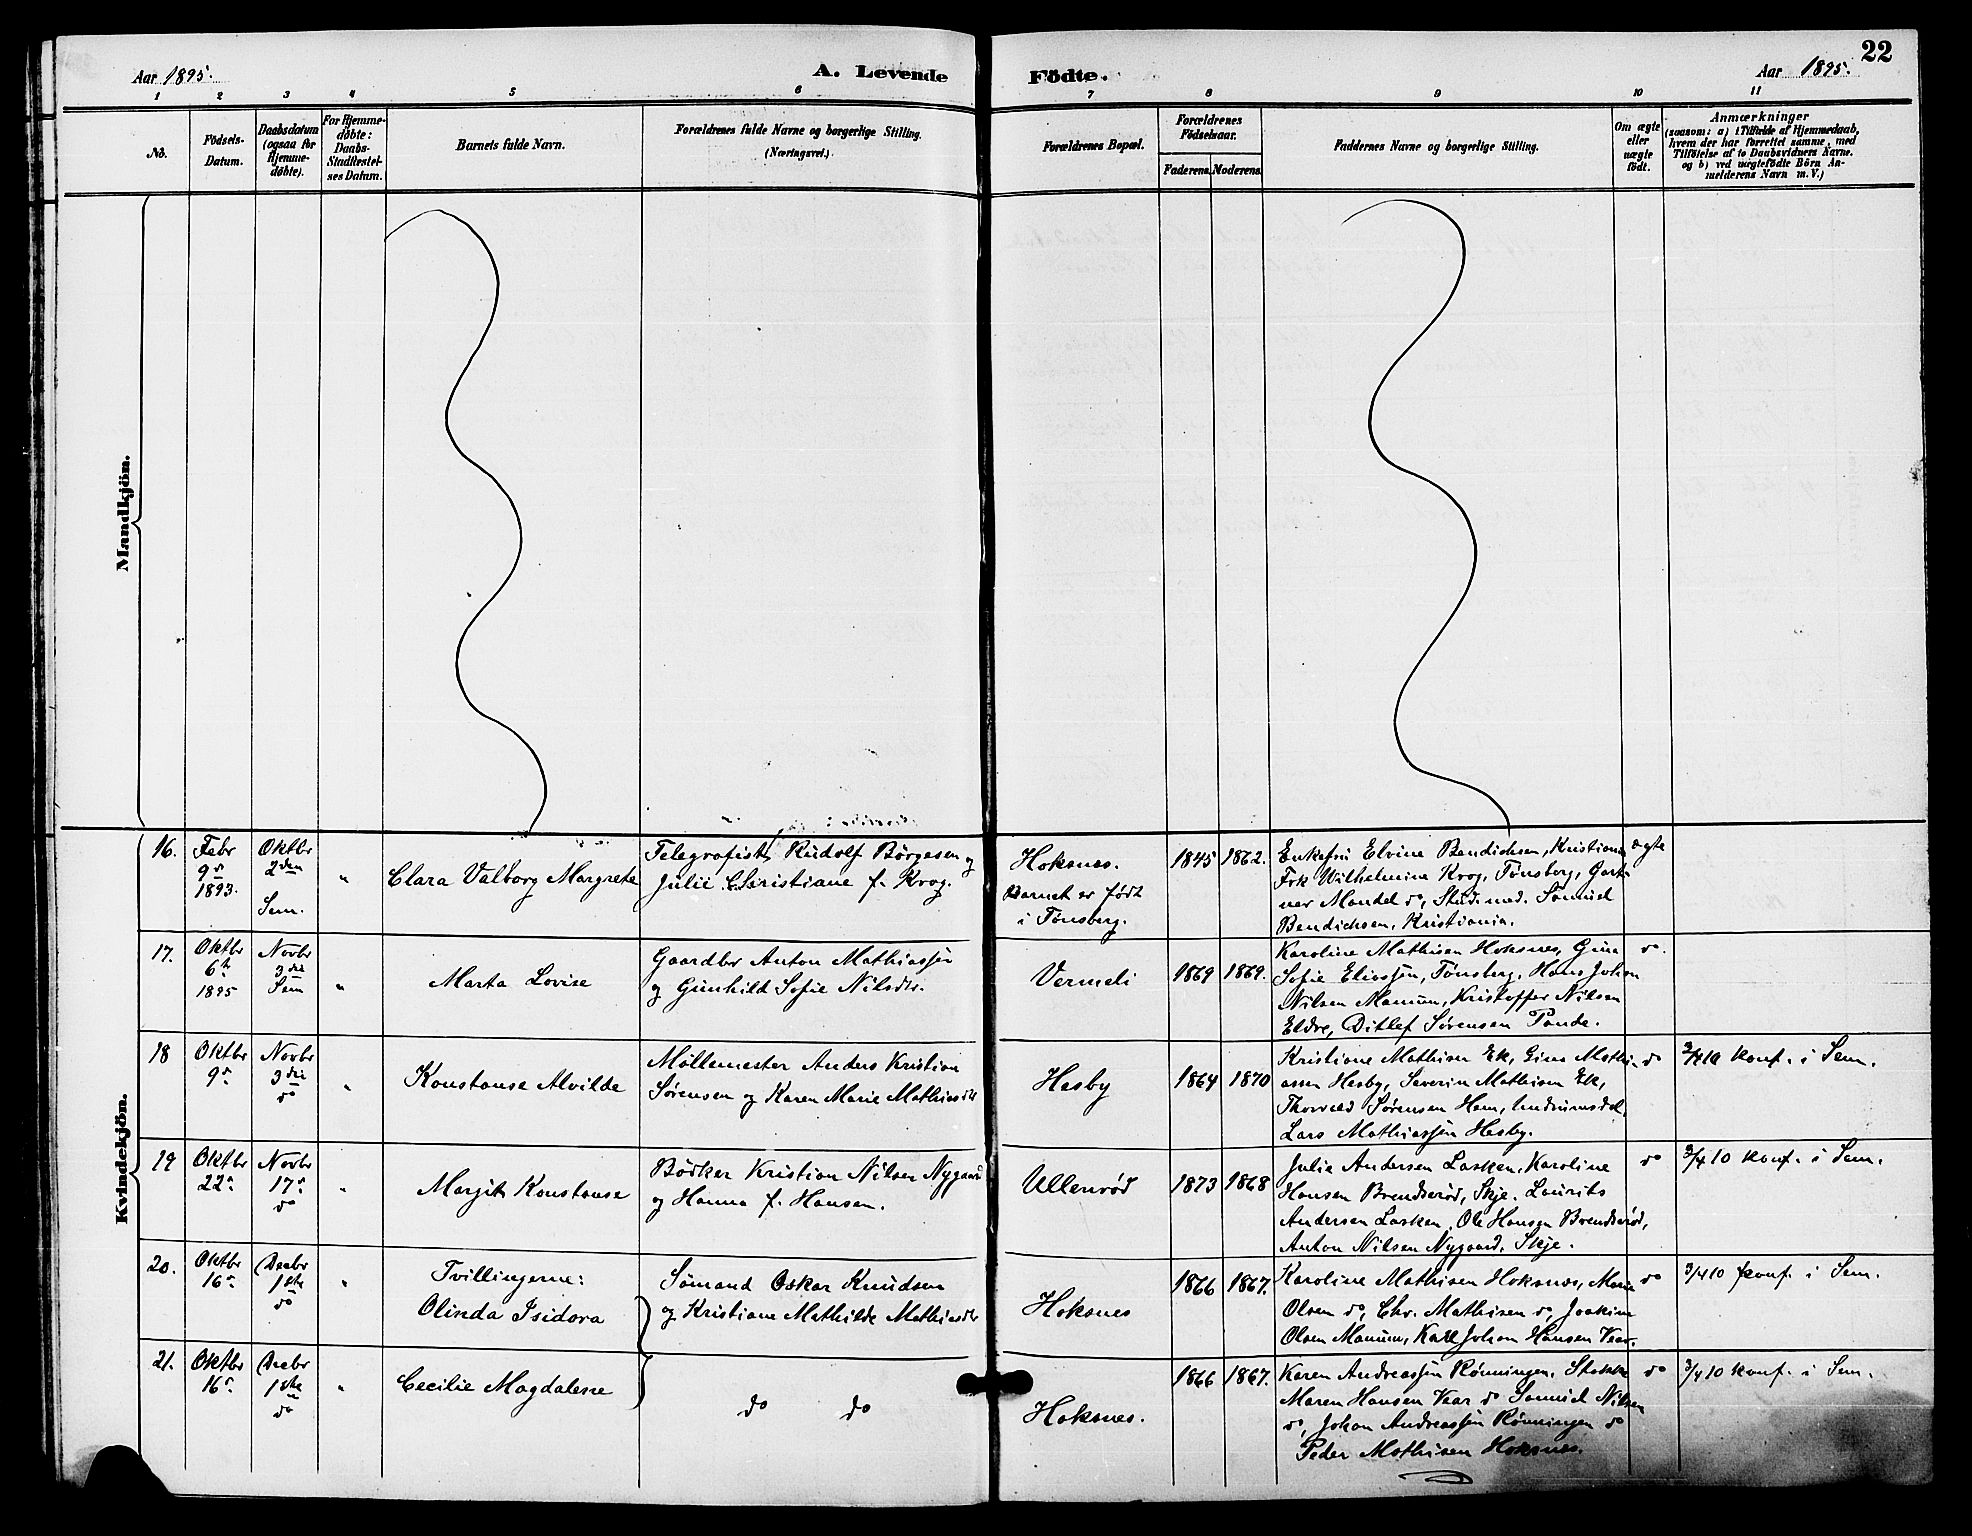 22
Aar 1895.
A. Levende
Födte.
Aar 1895.
1 2 3 4 5 6 7 8 9 10 11
No.
Födsels-
Datum.
Daabsdatum
(ogsaa for
Hjemme-
døbte).
For Hjemme-
døbte:
Daabs-
Stadfæstel-
ses Datum.
Barnets fulde Navn.
Forældrenes fulde Navne og borgerlige Stilling.
(Næringsvei.)
Forældrenes Bopæl.
Forældrenes
Födselsaar.
Faderens. Moderens.
Faddernes Navne og borgerlige Stilling.
Om ægte
eller
uægte
födt.
Anmærkninger
(saasom: a) i Tilfælde af Hjemmedaab,
hvem der har forrettet samme, med
Tilföielse af to Daabsvidners Navne.
og b) ved uægtefödte Börn An-
melderens Navn m. V.)
Mandkjön.
Kvindekjön.
16.
Febr
9r
1893.
Oktbr
2den
Sem.
"
Clara Valborg Margrete
Telegrafist Rudolf Börgesen og
Julie Christiane f. Krog.
Hoksnes.
Barnet er født
i Tønsberg.
1845
1862.
Enkefru Elvine Bendichsen, Kristiania
Frk Wilhelmine Krog, Tønsberg, Gart-
ner Mandal do, Stud. med. Samuel
Bendichsen, Kristiania.
ægte
17.
Oktbr
6te
1895
Novbr
3die
Sem
"
Marta Lovise
Gaardbr Anton Mathiassen
og Gunhild Sofie Nilsdtr.
Vermeli
1869
1869.
Karoline Mathisen Hoksnes, Gina
Sofie Eliassen, Tønsberg, Hans Johan
Nilsen Manum, Kristoffer Nilsen
Eldre, Ditlef Sørensen Tande.
do.
18
Oktbr
9r
Novbr
3die
do
"
Konstanse Alvilde
Møllemester Anders Kristian
Sørensen og Karen Marie Mathiasdtr
Hesby
1864
1870
Kristiane Mathisen Ek, Gina Mathi-
assen Hesby, Severin Mathisen Ek,
Thorvald Sørensen Hem,
Lars Mathiassen Hesby.
do
3/410 konf. i Sem.
19
Oktbr
22r
Novbr
17r
do
"
Margit Konstanse
Bödker Kristian Nilsen Nygaard
og Hanna f. Hansen.
Ullenrød
1873
1868
Julie Andersen Lasken, Karoline
Hansen Brendsrød, Skje. Laurits
Andersen Lasken, Ole Hansen Brendsrød,
Anton Nilsen Nygaard, Skje.
do
3/410 konf. i Sem.
20.
Oktbr
16r
Decbr
1ste
do
"
Tvillingerne:
Olinda Isidora
Sømand Oskar Knudsen
og Kristiane Mathilde Mathiasdtr
Hoksnes
1866
1867.
Karoline Mathisen Hoksnes, Marie
Olsen do, Chr. Mathisen do, Joakim
Olsen Manum, Karl Johan Hansen Vear.
do
3/410 konf. i Sem.
21.
Oktbr
16r.
Decbr
1ste
do
"
Cecilie Magdalene
do do
Hoksnes.
1866
1867.
Karen Andreassen Rønningen, Stokke
Maren Hansen Vear do Samuel Nilsen
do, Johan Andreassen Rønningen do
Peder Mathisen Hoksnes.
do
3/410 konf. i Sem.